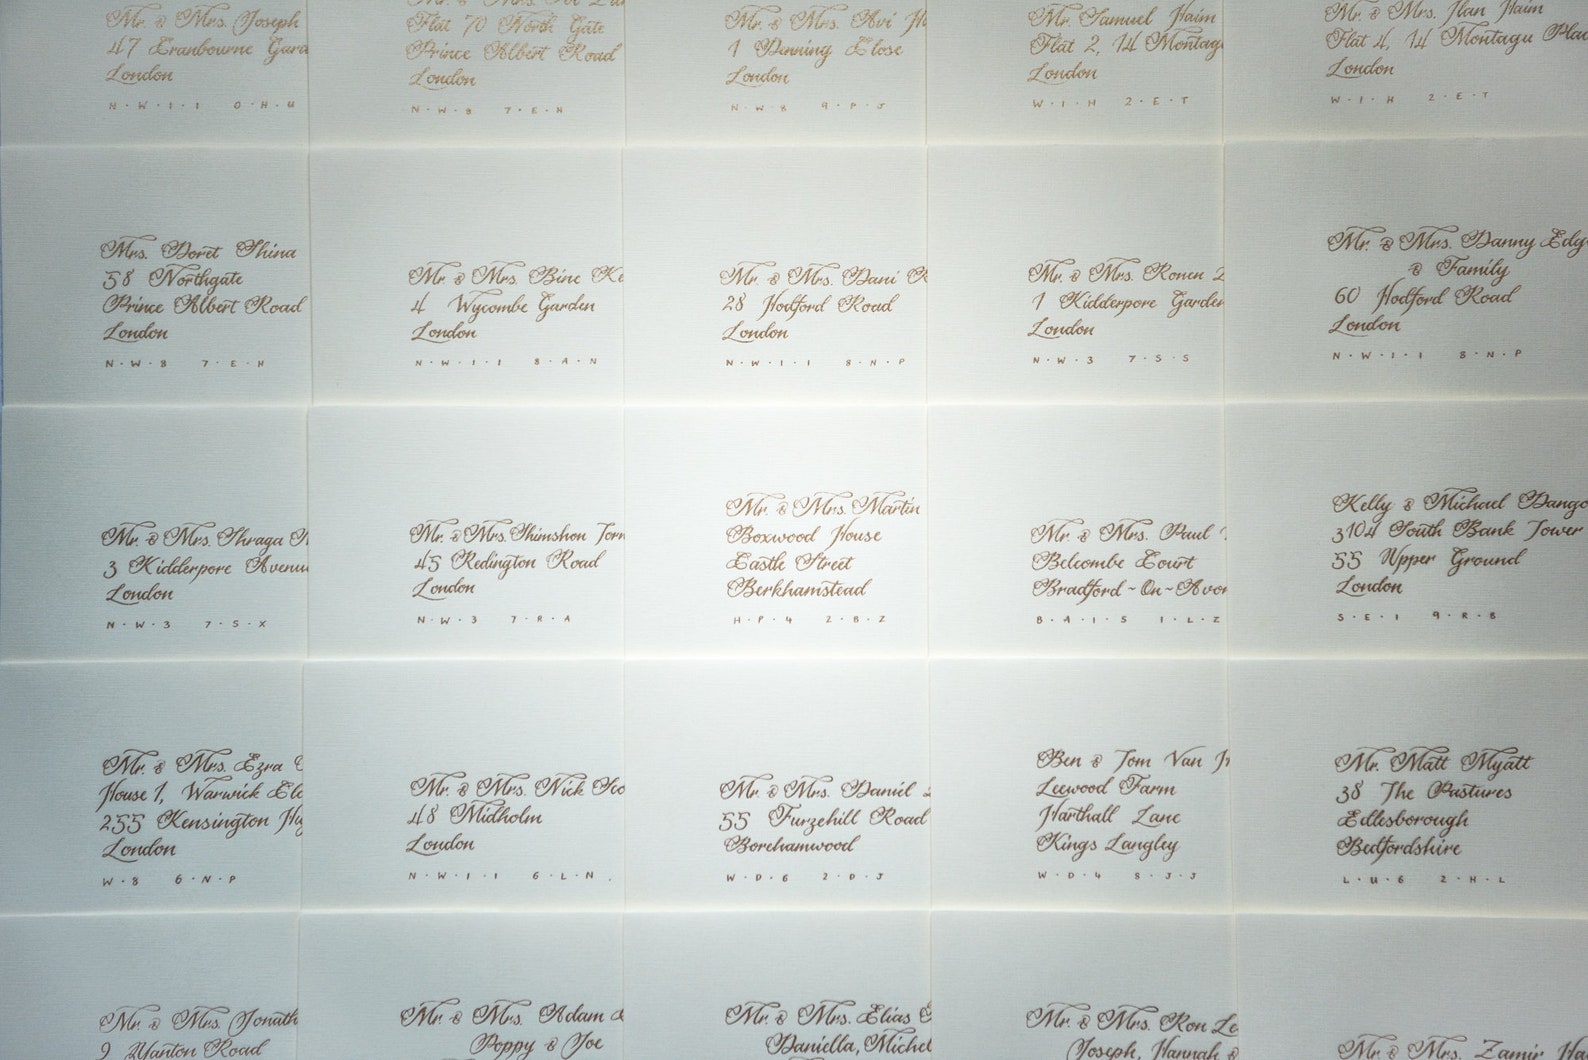 Mr. & Mrs. Joseph
47 Cranbourne Gard
London
N·W·1·1 0·H·U
Flat 70 North Gate
Prince Albert Road
London
N·W·8 7·E·H
Mr. & Mrs. Avi
1 Denning Close
London
N·W·8 9·P·J
Mr. Samuel Haim
Flat 2, 14 Montag
London
W·1·H 2·E·T
Mr. & Mrs. Ilan Haim
Flat 4, 14 Montagu Plac
London
W·1·H 2·E·T
Mrs. Doret Shina
58 Northgate
Prince Albert Road
London
N·W·8 7·E·H
Mr. & Mrs. Bine Ke
4 Wycombe Garden
London
N·W·1·1 8·A·N
Mr. & Mrs. Dani
28 Hodford Road
London
N·W·1·1 8·N·P
Mr. & Mrs. Ronen
1 Kidderpore Garden
London
N·W·3 7·S·S
Mr. & Mrs. Danny Edg
& Family
60 Hodford Road
London
N·W·1·1 8·N·P
Mr. & Mrs. Shraga
3 Kidderpore Avenu
London
N·W·3 7·S·X
Mr. & Mrs. Shimshon Torn
45 Redington Road
London
N·W·3 7·R·A
Mr. & Mrs. Martin
Boxwood House
Castle Street
Berkhamstead
H·P·4 2·B·Z
Mr. & Mrs. Paul
Belcombe Court
Bradford~On~Avon
B·A·1·5 1·L·Z
Kelly & Michael Dango
3104 South Bank Tower
55 Upper Ground
London
S·E·1 9·R·B
Mr. & Mrs. Ezra
House 1, Warwick Clo
255 Kensington Hig
London
W·8 6·N·P
Mr. & Mrs. Nick Sco
48 Midholm
London
N·W·1·1 6·L·N.
Mr. & Mrs. Daniel
55 Furzehill Road
Borehamwood
W·D·6 2·D·J
Ben & Tom Van
Leewood Farm
Harthall Lane
Kings Langley
W·D·4 8·J·J
Mr. Matt Myatt
38 The Pastures
Edlesborough
Bedfordshire
L·U·6 2·H·L
Mr. & Mrs. Jonath
9 Road
Mr. & Mrs. Adam
Poppy & Joe
Mr. & Mrs. Elias
Daniella, Michel
Mr. & Mrs. Ron Le
Joseph, Hannah &
Mr. & Mrs. Zamir